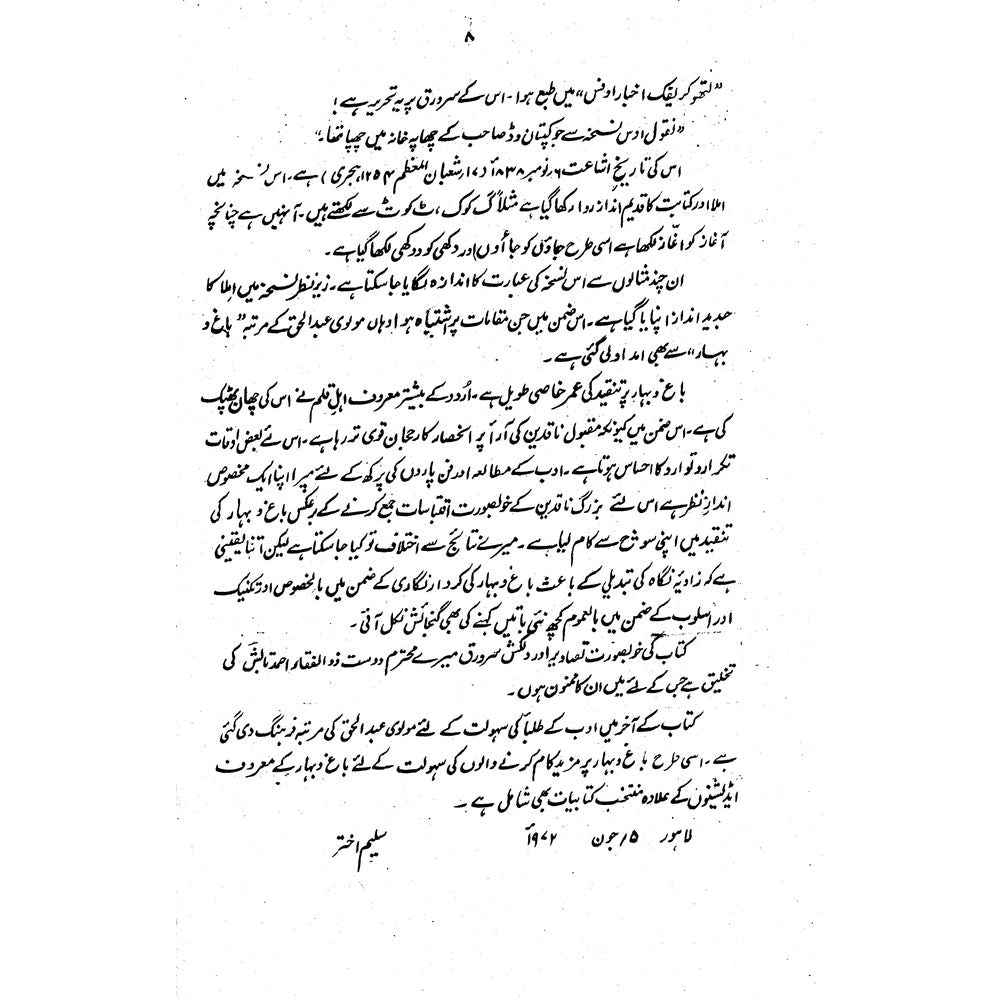 ۸
”لتھو گریفک اخبار اوفس“ میں طبع ہوا۔ اس کے سرورق پر یہ تحریر ہے!
”نقول اوس نسخہ سے جو کپتان وڈ صاحب کے چھاپہ خانہ میں چھپا تھا۔“
اس کی تاریخِ اشاعت ۶ نومبر ۱۸۳۸ء (۱۷ شعبان المعظم ۱۲۵۴ ہجری) ہے۔ اس نسخہ میں
املا اور کتابت کا قدیم انداز روا رکھا گیا ہے مثلاً گ کو ک، ٹ کو ت سے لکھتے ہیں۔ آ نہیں ہے چنانچہ
آغاز کو اغاز لکھا ہے اسی طرح جاؤں کو جاؤں اور دکھی کو دکھی لکھا گیا ہے۔
ان چند مثالوں سے اس نسخہ کی عبارت کا اندازہ لگایا جا سکتا ہے۔ زیرِ نظر نسخہ میں املا کا
جدید انداز اپنایا گیا ہے۔ اس ضمن میں جن مقامات پر اشتباہ ہوا وہاں مولوی عبدالحق کے مرتبہ ”باغ و
بہار“ سے بھی امداد لی گئی ہے۔
باغ و بہار پر تنقید کی عمر خاصی طویل ہے۔ اُردو کے بیشتر معروف اہلِ قلم نے اس کی چھان پھٹک
کی ہے۔ اس ضمن میں کیونکہ مقبول ناقدین کی آرأ پر انحصار کا رجحان قوی تر رہا ہے۔ اس لئے بعض اوقات
تکرار و توارد کا احساس ہوتا ہے۔ ادب کے مطالعہ اور فن پاروں کی پرکھ کے لئے میرا اپنا ایک مخصوص
اندازِ نظر ہے اس لئے بزرگ ناقدین کے خوبصورت اقتباسات جمع کرنے کے برعکس باغ و بہار کی
تنقید میں اپنی سوچ سے کام لیا ہے۔ میرے نتائج سے اختلاف تو کیا جا سکتا ہے لیکن اتنا یقینی
ہے کہ زاویۂ نگاہ کی تبدیلی کے باعث باغ و بہار کی کردار نگاری کے ضمن میں بالخصوص اور تکنیک
اور اسلوب کے ضمن میں بالعموم کچھ نئی باتیں کہنے کی بھی گنجائش نکل آئی۔
کتاب کی خوبصورت تصاویر اور دلکش سرورق میرے محترم دوست ذوالفقار احمد تابش کی
تخلیق ہے جس کے لئے میں ان کا ممنون ہوں۔
کتاب کے آخر میں ادب کے طلبأ کی سہولت کے لئے مولوی عبدالحق کی مرتبہ فرہنگ دی گئی
ہے۔ اسی طرح باغ و بہار پر مزید کام کرنے والوں کی سہولت کے لئے باغ و بہار کے معروف
ایڈیشنوں کے علاوہ منتخب کتابیات بھی شامل ہے۔
لاہور ۱۵ جون ۱۹۷۲ء
سلیم اختر